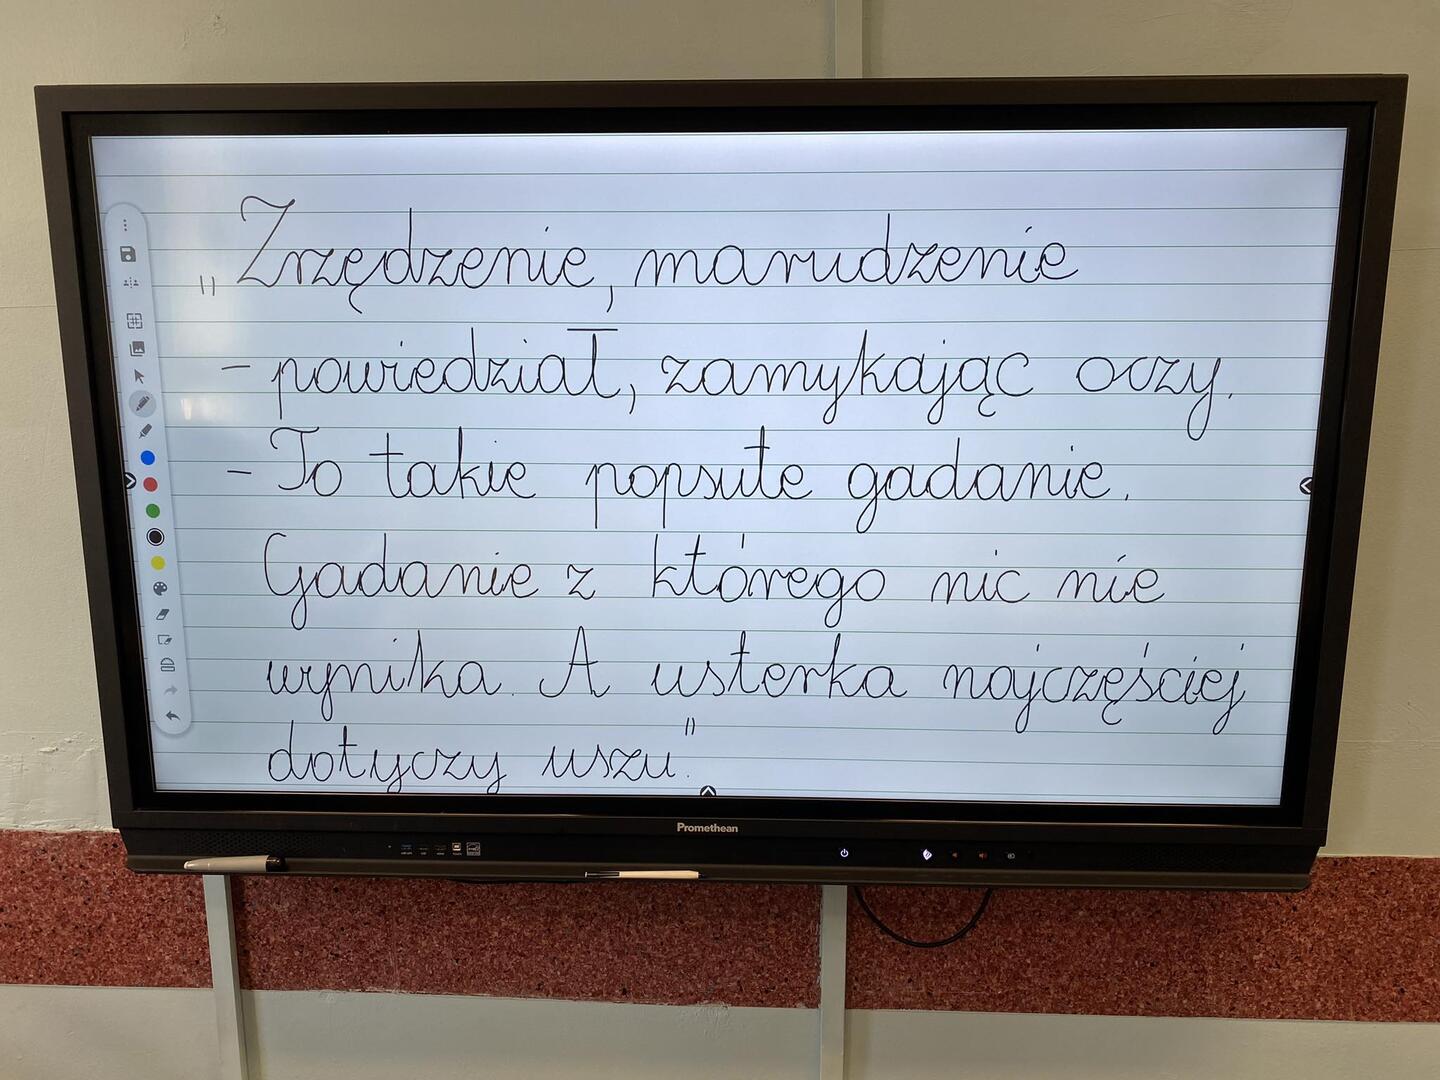 „Zrzędzenie, marudzenie
- powiedział, zamykając oczy.
- To takie popsute gadanie.
Gadanie z którego nic nie
wynika. A usterka najczęściej
dotyczy uszu".
Promethean